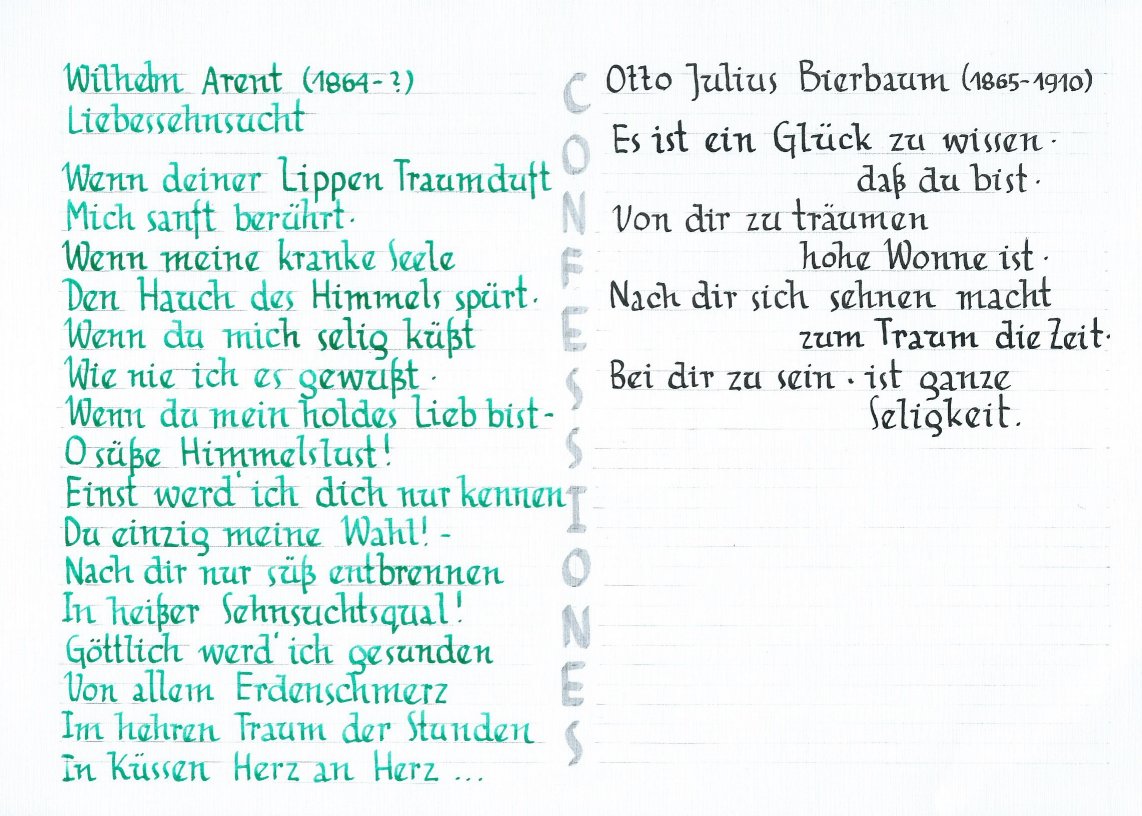 Wilhelm Arent (1864-?)
Liebessehnsucht
Wenn deiner Lippen Traumduft
Mich sanft berührt.
Wenn meine kranke Seele
Den Hauch des Himmels spürt.
Wenn du mich selig küßt
Wie nie ich es gewußt.
Wenn du mein holdes Lieb bist-
O süße Himmelslust!
Einst werd' ich dich nur kennen
Du einzig meine Wahl! -
Nach dir nur süß entbrennen
In heißer Sehnsuchtsqual!
Göttlich werd' ich gesunden
Von allem Erdenschmerz
Im hehren Traum der Stunden
In Küssen Herz an Herz ...
CONFESSIONES
Otto Julius Bierbaum (1865-1910)
Es ist ein Glück zu wissen.
daß du bist.
Von dir zu träumen
hohe Wonne ist.
Nach dir sich sehnen macht
zum Traum die Zeit.
Bei dir zu sein . ist ganze
Seligkeit.